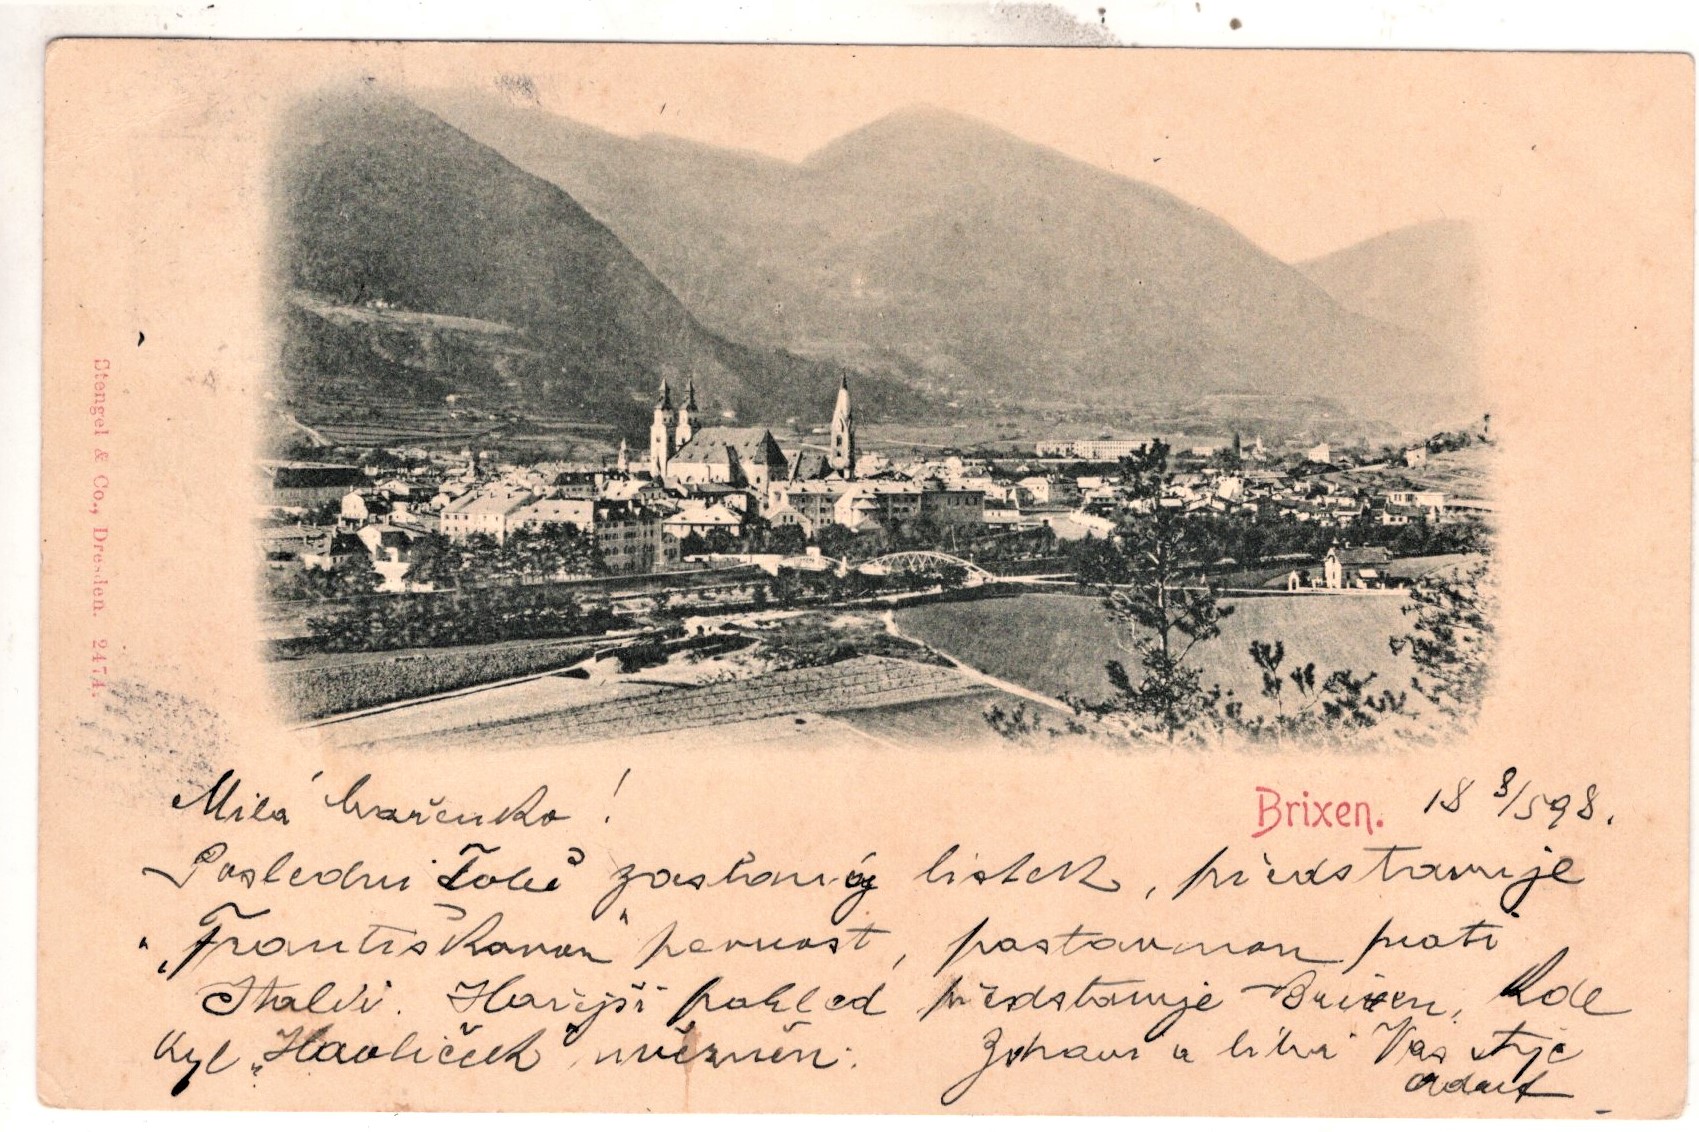 Stengel & Co., Dresden. 2474.
Milá Mařenko!
Brixen. 18 8/5 98.
Poslední Tobě zaslaný lístek, představuje
„Františkovou" pevnost, postavenou proti
Italii. Hořejší pohled představuje Brixen, kde
byl „Havlíček" uvězněn. Zdraví a líbá Vás strýc